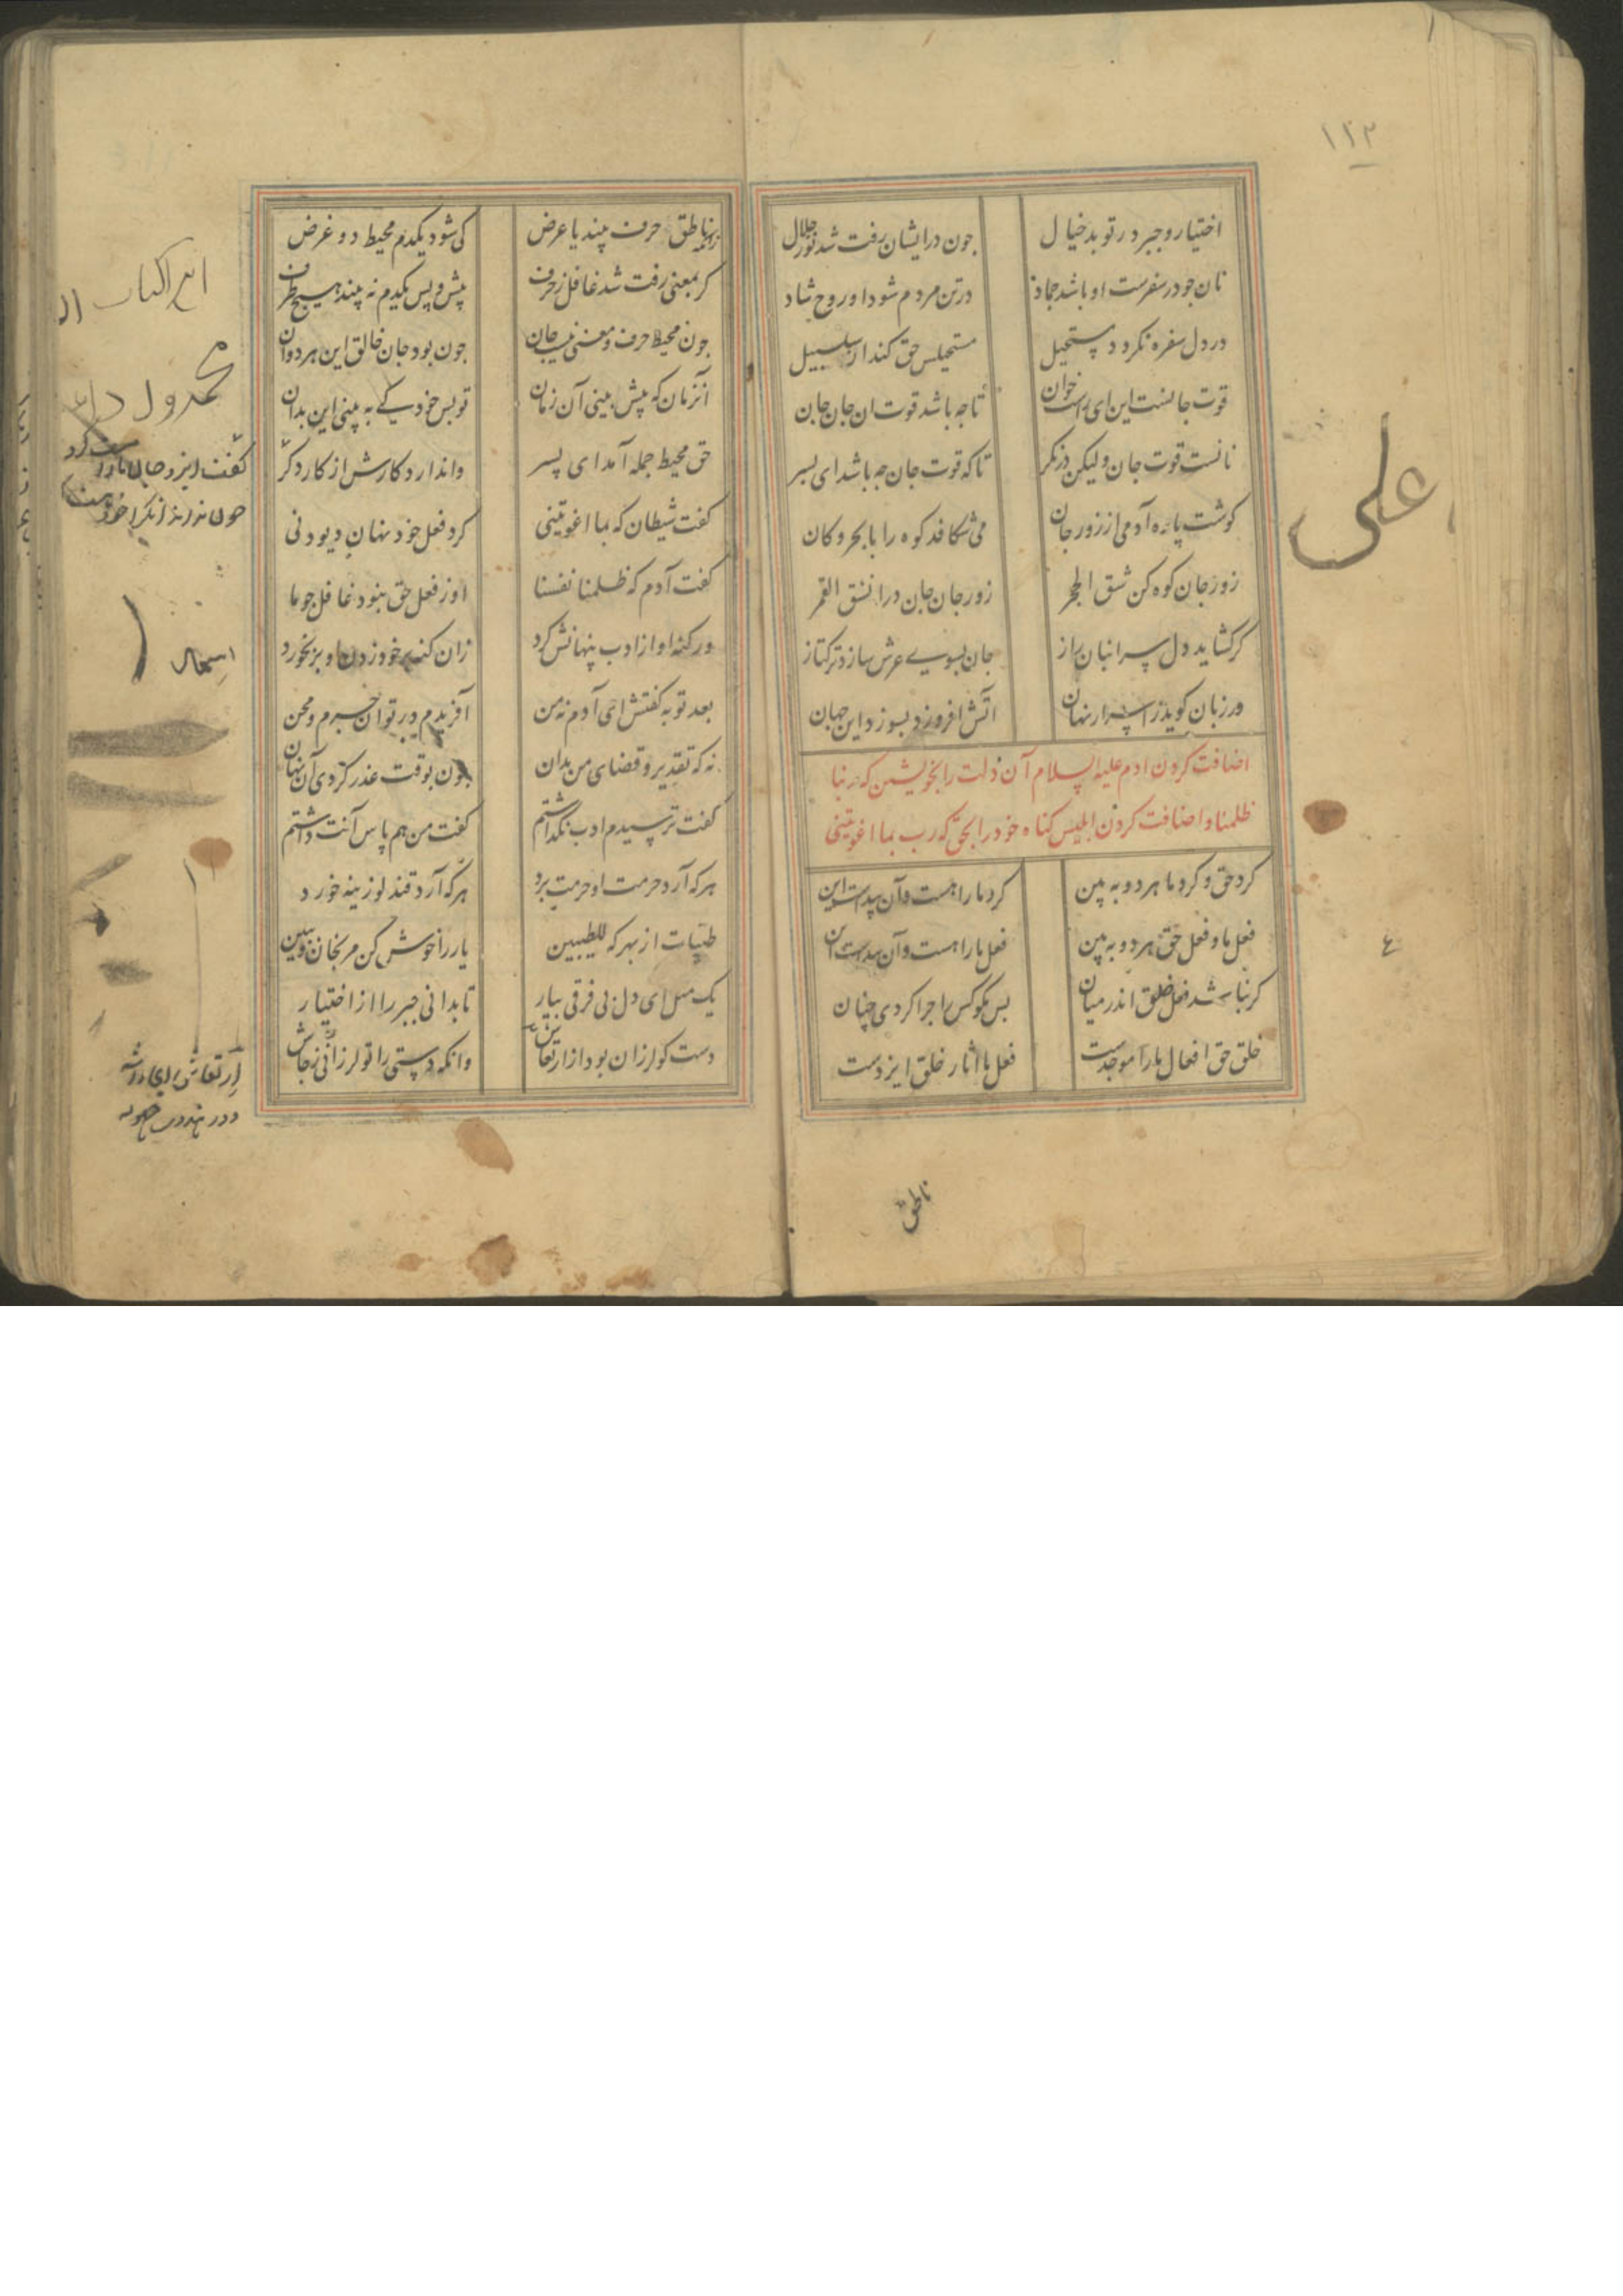 ۱۲۳
اختیار و جبر در تو بد خیال
جون در ایشان رفت شد نور جلال
نان جو در سفرست او باشد جماذ
در تن مردم شود او روح شاد
در دل سفره نکردد مستحیل
مستحیلس حق کند از سلسبیل
قوت جانست این ای راست خوان
تا جه باشد قوت ان جان جان
نانست قوت جان ولیکن در نکر
تا که قوت جان جه باشد ای پسر
کوشت پاره آدمی از زور جان
می شکافد کوه را با بحر و کان
زور جان کوه کن شق الحجر
زور جان جان در انشق القمر
کر کشاید دل سر انبان راز
جان بسوی عرش سازد ترکتاز
ور زبان کوید ز اسرار نهان
آتش افروزد بسوزد این جهان
اضافت کردن ادم علیه السلام آن ذلت را بخویشتن که ربنا
ظلمنا و اضافت کردن ابلیس کناه خود را بحق که رب بما اغویتنی
کرد حق و کرد ما هر دو به بین
کرد ما را هست دان پیداست این
فعل ما و فعل حق هر دو به بین
فعل ما را هست دان پیداست این
کر نباشد فعل خلق اندر میان
بس مکو کس را جرا کردی چنان
خلق حق افعال ما را موجدست
فعل ما اثار خلق ایزدست
ناطق
علی
٤
ناطق حرف بیند یا عرض
کی شود یکدم محیط دو غرض
کر بمعنی رفت شد غافل ز حرف
پیش و پس یکدم نه بیند هیچ طرف
آنزمان که پیش بینی آن زمان
تو پس خود کی به بینی این بدان
جون محیط حرف و معنی نیست جان
جون بود جان خالق این هر دوان
حق محیط جمله آمد ای پسر
واندارد کارش از کار دکر
کفت شیطان که بما اغویتنی
کرد فعل خود نهان دیو دنی
کفت آدم که ظلمنا نفسنا
او ز فعل حق نبود غافل جو ما
در کنه او از ادب پنهانش کرد
زان کنه بر خود زدن او بر بخورد
بعد توبه کفتش ای آدم نه من
آفریدم در تو ان جرم و محن
نه که تقدیر و قضای من بدان
جون بوقت عذر کردی آن نهان
کفت ترسیدم ادب نکذاشتم
کفت من هم پاس آنت داشتم
هر که آرد حرمت او حرمت برد
هر که آرد قند لوزینه خورد
طیبات از بهر که للطیبین
یار را خوش کن مرنجان و ببین
یک مثل ای دل پی فرقی بیار
تا بدانی جبر را از اختیار
دست کو لرزان بود از ارتعاش
وانکه دستی را تو لرزانی ز جاش
محمد ول
کفت ایزد جان ما را مست کرد
ارتعاش